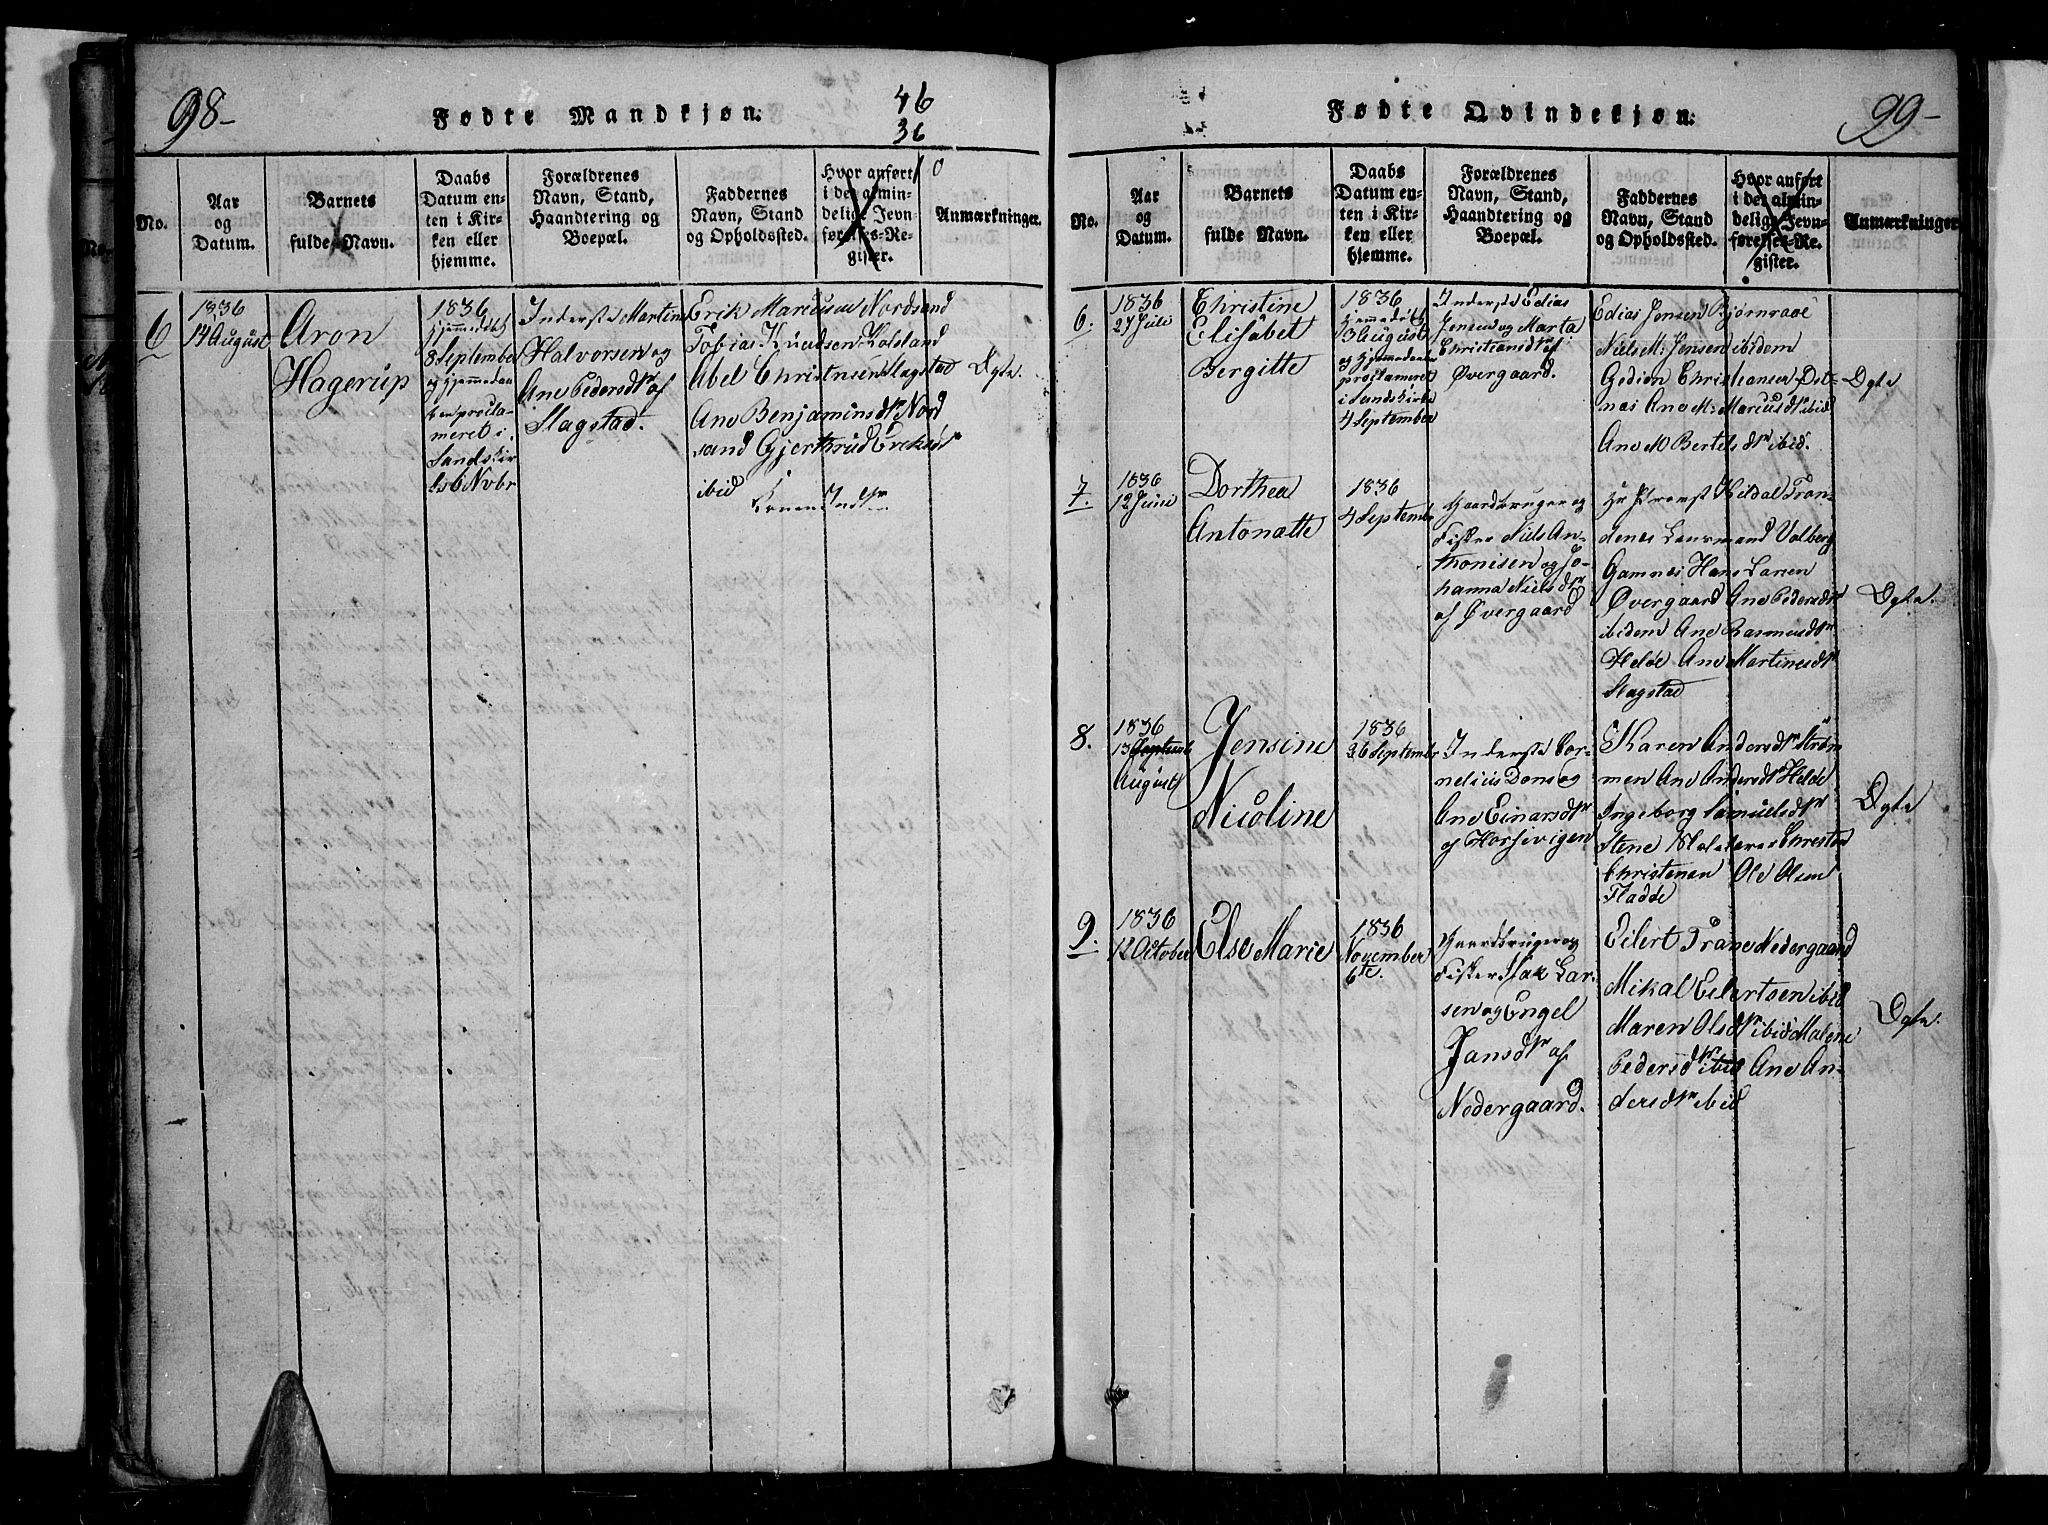 98-
Fødte Mandkjøn.
46
36
10
No.
Aar og Datum.
Barnets fulde Navn.
Daabs Datum enten i Kirken eller hjemme.
Forældrenes Navn, Stand, Haandtering og Boepæl.
Faddernes Navn, Stand og Opholdssted.
Hvor anført i det almindelige Jevnførelses-Register.
Anmærkninger.
6
1836
14 August
Aron
Hagerup
1836
hjemmedøbt
8 September
og hjemmedaaben
proclameret i
Sandskirke
6 Nobr
Inderste Martin
Halvorsen og
Ane Pedersdtr af
Slagstad.
Erik Marcusen Nordsand
Tobias Knudsen Kolsland
Abel Christnsen Slagstad
Ane Benjaminsdtr Nord
sand Gjerthrud Eriksdt
ibid
Dgte.
99-
Fødte Qvindekjøn.
No.
Aar og Datum.
Barnets fulde Navn.
Daabs Datum enten i Kirken eller hjemme.
Forældrenes Navn, Stand, Haandtering og Boepæl.
Faddernes Navn, Stand og Opholdssted.
Hvor anført i det almindelige Jevnførelses-Register.
Anmærkninger
6.
1836
27 Juli
Christine
Elisabet
Bergitte
1836
hjemmedøbt
3 August
og hjemmedaaben
proclameret
i Sandskirke
4 September
Inderste Edias
Jensen og Marta
Christiansdtr af
Øvergaard.
Edias Jensen Bjørnraae
Niels M: Jensen ibidem
Gedion Christiansen Det-
næs Ane M: Marcusdtr ibid
Ane M Bertelsdtr ibid.
Dgte
7.
1836
12 Juni
Dorthea
Antonætte
1836
4 September
Gaardbruger og
Fisker Niels An-
thonisen og Jo-
hanna Nielsdtr
af Øvergaard
Hr Provst Kildal Tron-
denes Lensmand Valberg
Gamnes Hans Larsen
Øvergaard Ane Pedersdtr
ibidem Ane Rasmusdtr
Heløe Ane Martinusdtr
Slagstad
Dgte.
8.
1836
13 September
August
Jensine
Nicoline
1836
26 September
Inderste Cor-
nelius Dons og
Ane Einarsdtr
af Horsevigen
Karen Andersdtr Strøm
men Ane Andersdtr Heløe
Ingeborg Samuelsdtr
Stene
Christensen Ole Olsen
Fladøe
Dgte
9.
1836
12 October
Else Marie
1836
November
6te.
Gaardbruger og
Fisker Isak Lar-
sen og Engel
Jansdtr af
Nedergaard.
Eilert Trane Nedergaard
Mikal Eilertsen ibid
Maren Olsdtr ibid Malene
Pedersdtr ibid Ane An-
dersdtr ibid
Dgte.